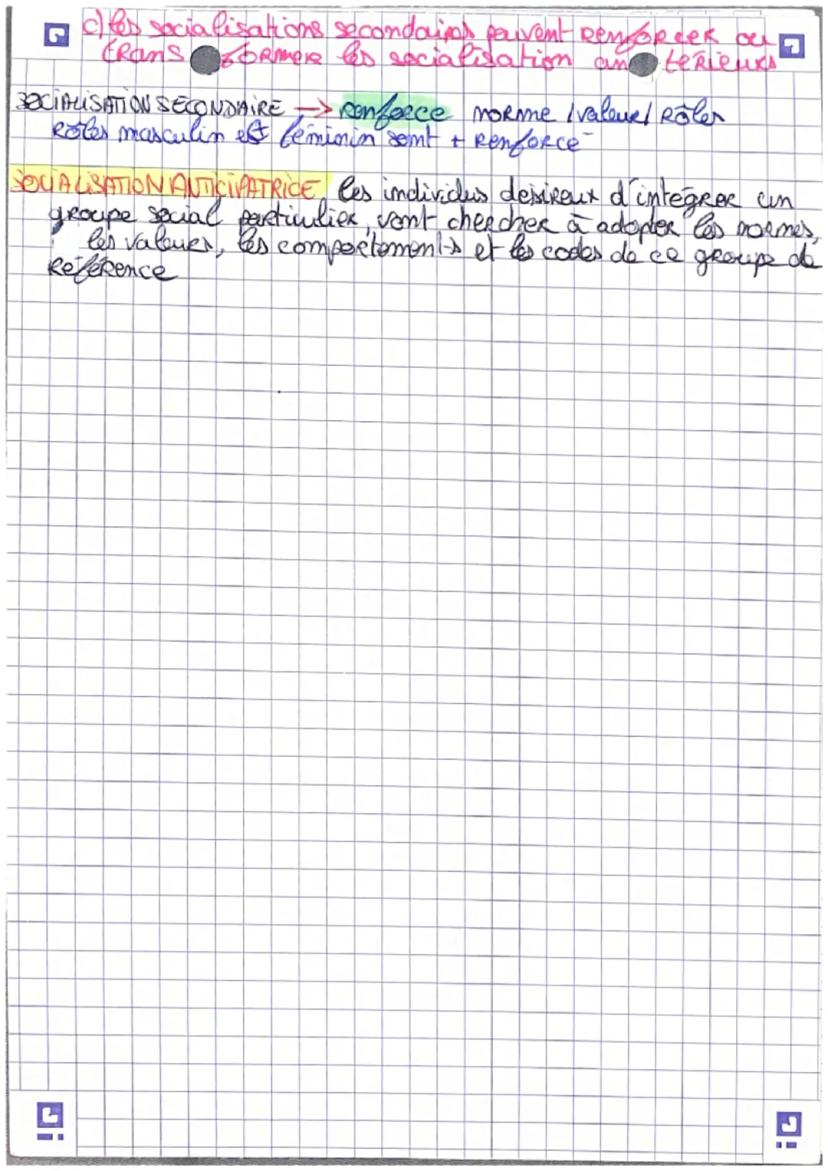 c) les socialisations secondaires peuvent renforcer ou
transformer les socialisation antérieurs
SOCIALISATION SECONDAIRE → renforce norme / valeur / Rôles
Rôles masculin et féminin sont + renforcé
SOCIALISATION ANTICIPATRICE les individus desireux d'integrer un
groupe social particulier, vont chercher à adopter les normes,
les valeurs, les comportements et les codes de ce groupe de
Référence